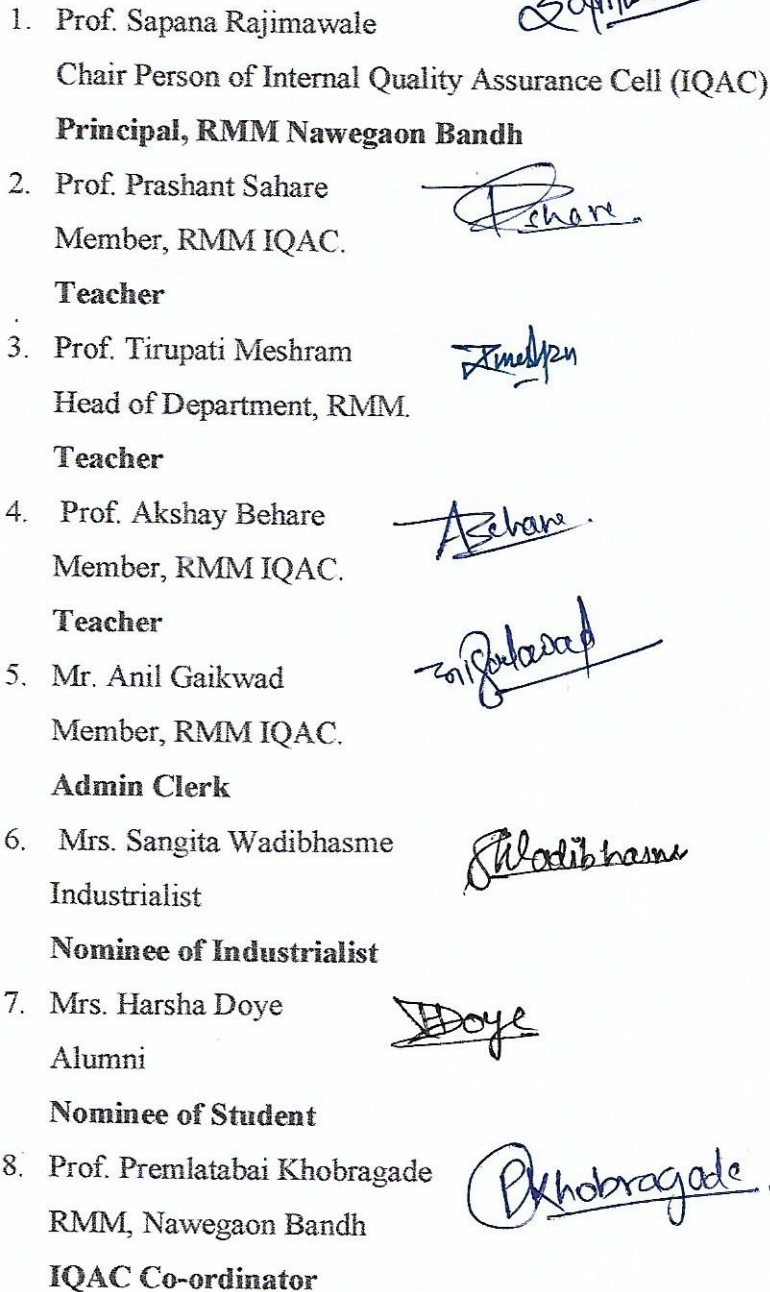 1. Prof. Sapana Rajimawale
Chair Person of Internal Quality Assurance Cell (IQAC)
Principal, RMM Nawegaon Bandh
2. Prof. Prashant Sahare
Pshare.
Member, RMM IQAC.
Teacher
3. Prof. Tirupati Meshram
Head of Department, RMM.
Teacher
4. Prof. Akshay Behare
ABehare.
Member, RMM IQAC.
Teacher
5. Mr. Anil Gaikwad
Member, RMM IQAC.
Admin Clerk
6. Mrs. Sangita Wadibhasme
SWadibhasme
Industrialist
Nominee of Industrialist
7. Mrs. Harsha Doye
HDoye
Alumni
Nominee of Student
8. Prof. Premlatabai Khobragade
PKhobragade.
RMM, Nawegaon Bandh
IQAC Co-ordinator